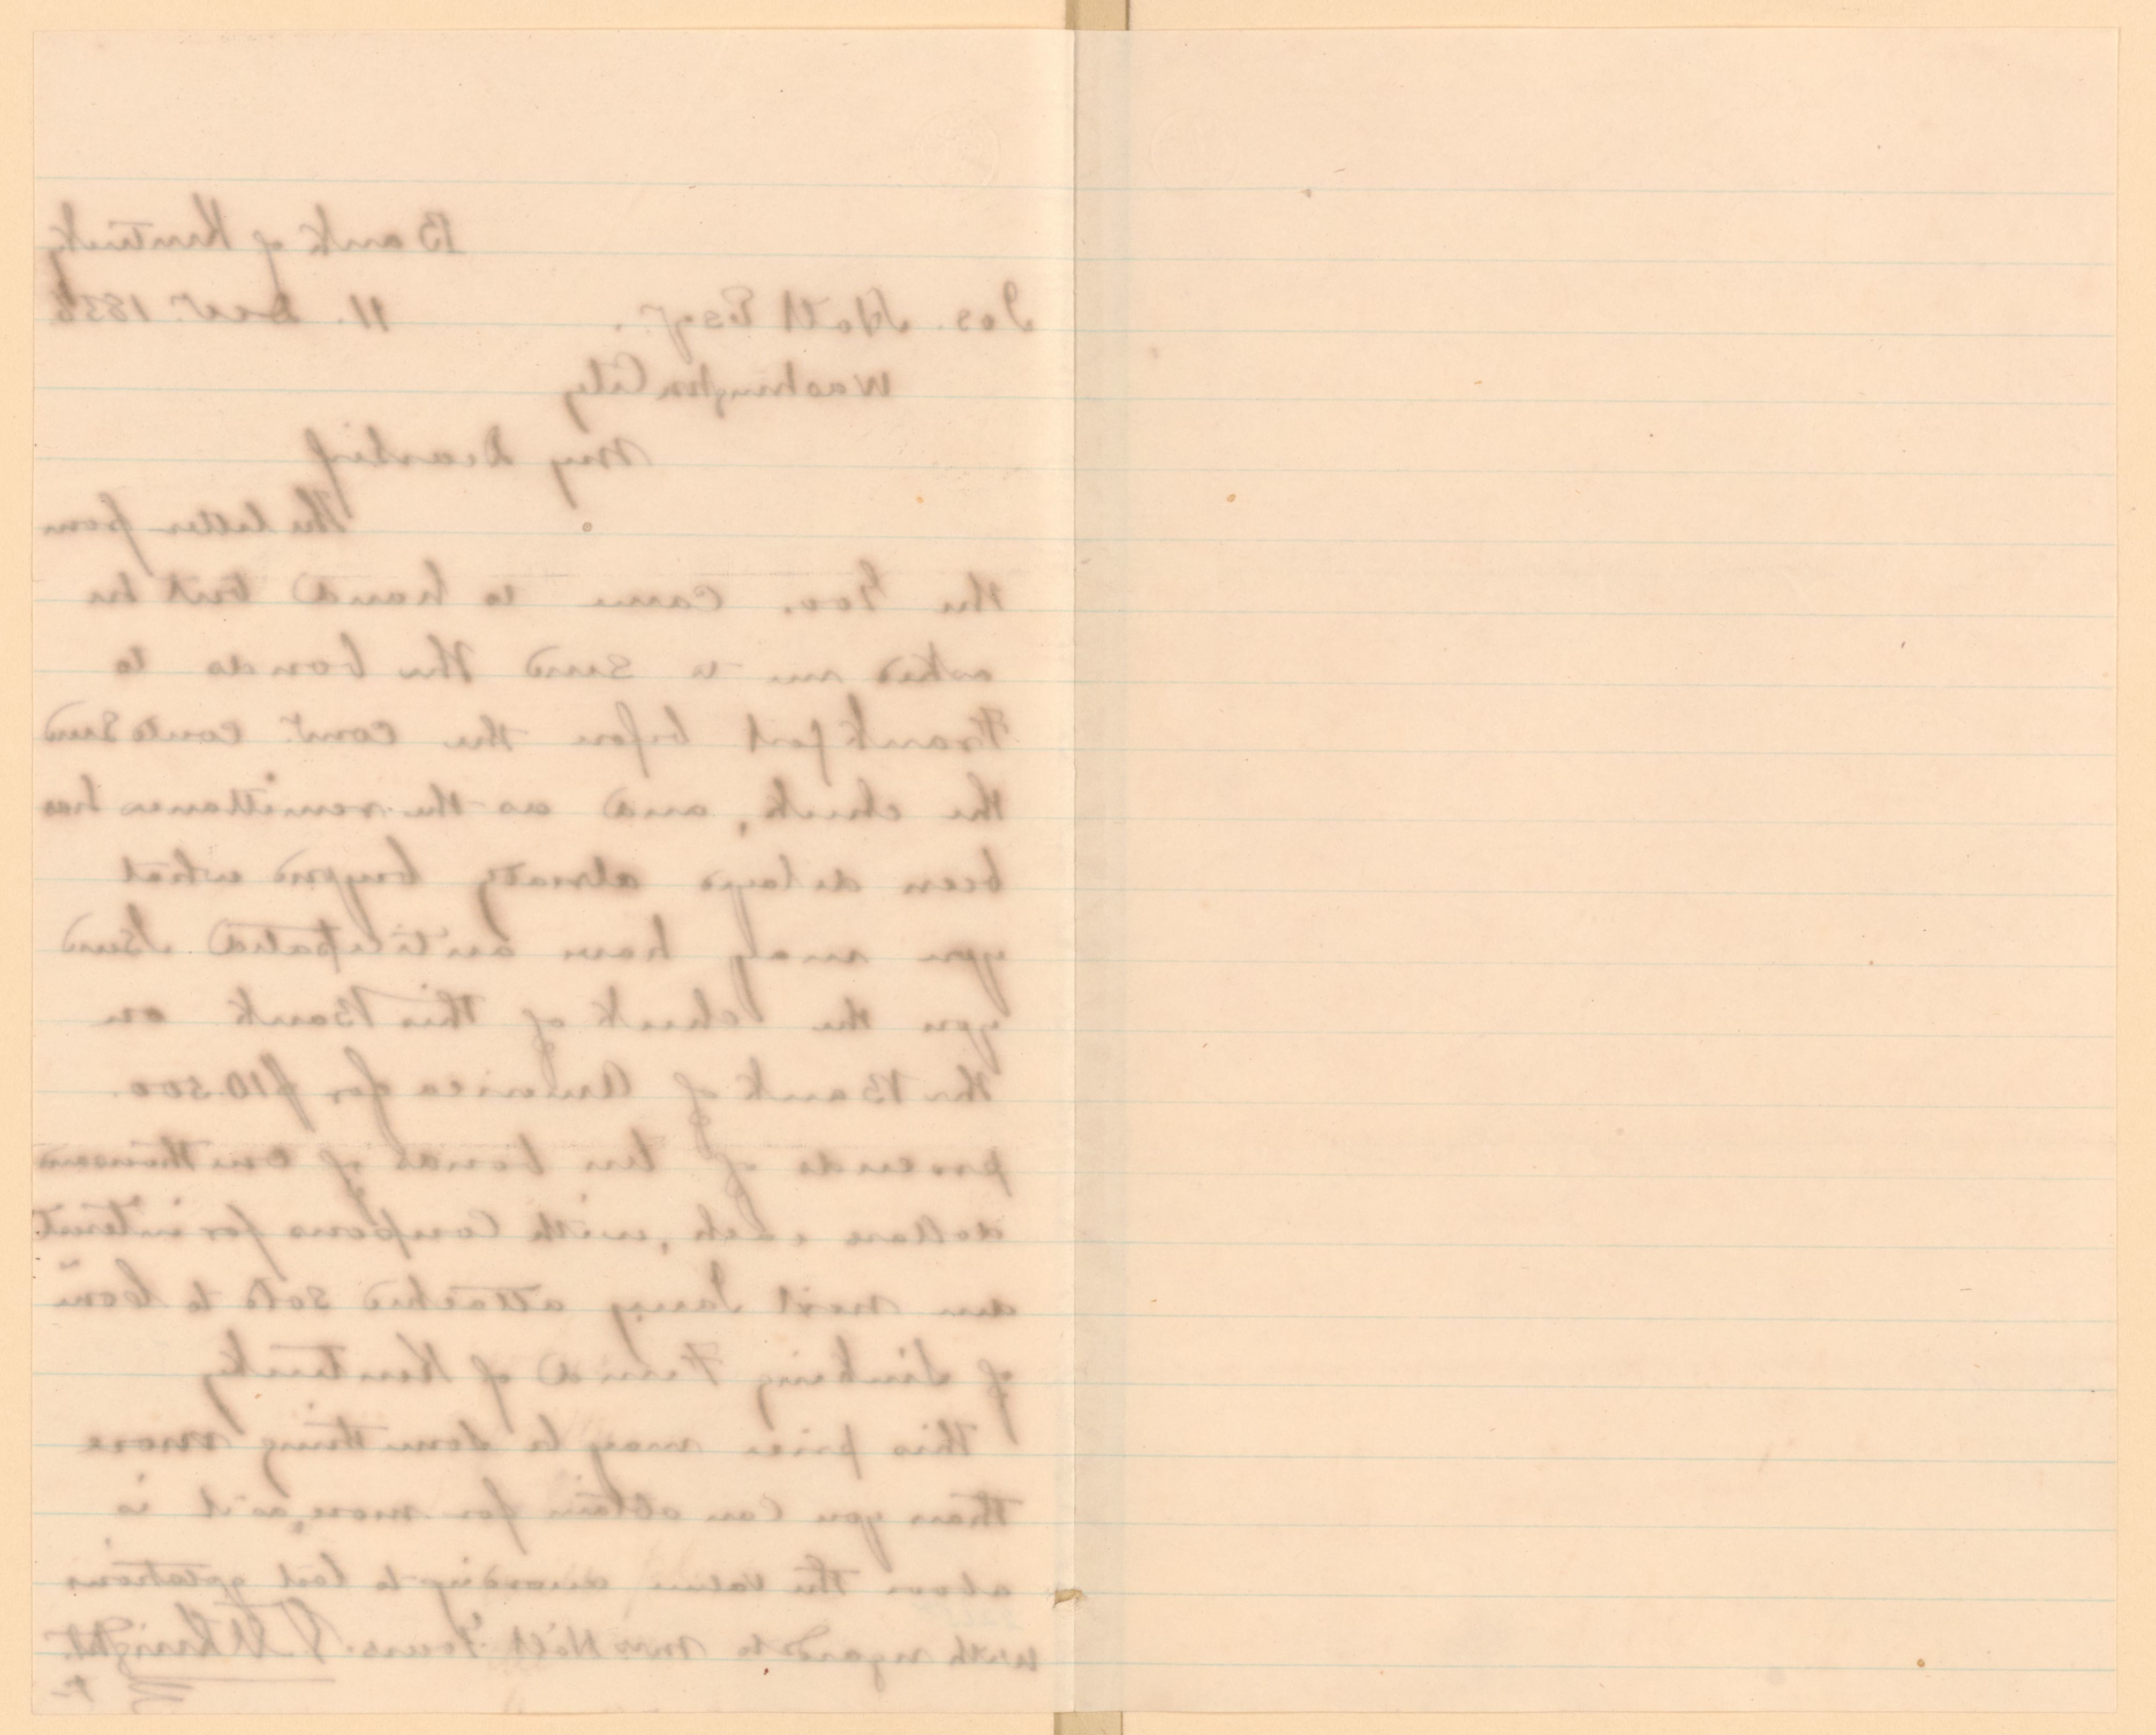 Bank of Kentucky
Jos. Holt Esqr. 11. Decr. 185
Washington City
My Dear Sir
The letter from
the Gov. came to hand but he
asked me to send the bonds to
Frankfort before the comr. could send
the check, and as the remittance has
been delayed already beyond what
you may have anticipated I send
you the check of this Bank on
the Bank of America for $10.500.
proceeds of ten bonds of one thousand
dollars each, with Coupons for interest
due next Jany attached sold to Comr
of Sinking Fund of Kentucky
This price may be something more
than you can obtain for more, as it is
above the value according to last quotations
with regards to Mrs Holt Yours.